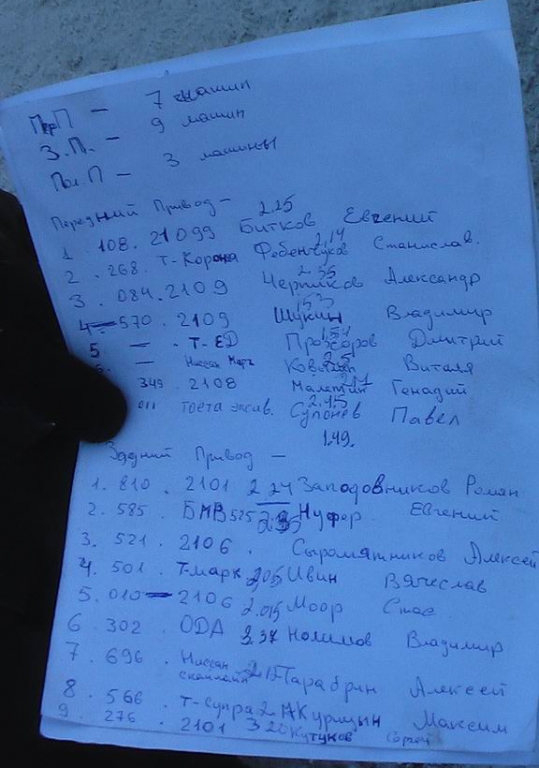 ПерП - 7 машин
З.П. - 9 машин
Пол.П - 3 машины
Передний Привод -
2.25
1. 108. 21099 Битков Евгений
2.14
2. 268. Т-Корона Фебенчуков Станислав.
3. 084. 2109 Черников Александр
4 - 570. 2109 Щукин Владимир
5 - . Т-ЕD Прохоров Дмитрий
- Ниссан Виталя
349. 2108 Генадий
2.45
011 Супонев Павел
1.49.
Задний Привод -
1. 810. 2101 2.24 Заподовников Роман
2. 585. БМВ 525 Нуфер Евгений
3. 521. 2106. Сыромятников Алексей
4. 501. Т-марк 2,05 Ивин Вячеслав
5. 010 - 2106 2.015 Моор Стас
6. 302. ОДА Налимов Владимир
7. 696. Ниссан Скайлайн Тарабрин Алексей
8. 566. Т-Супра Курицын Максим
9. 276. 2101 3 20 Кутуков Сергей